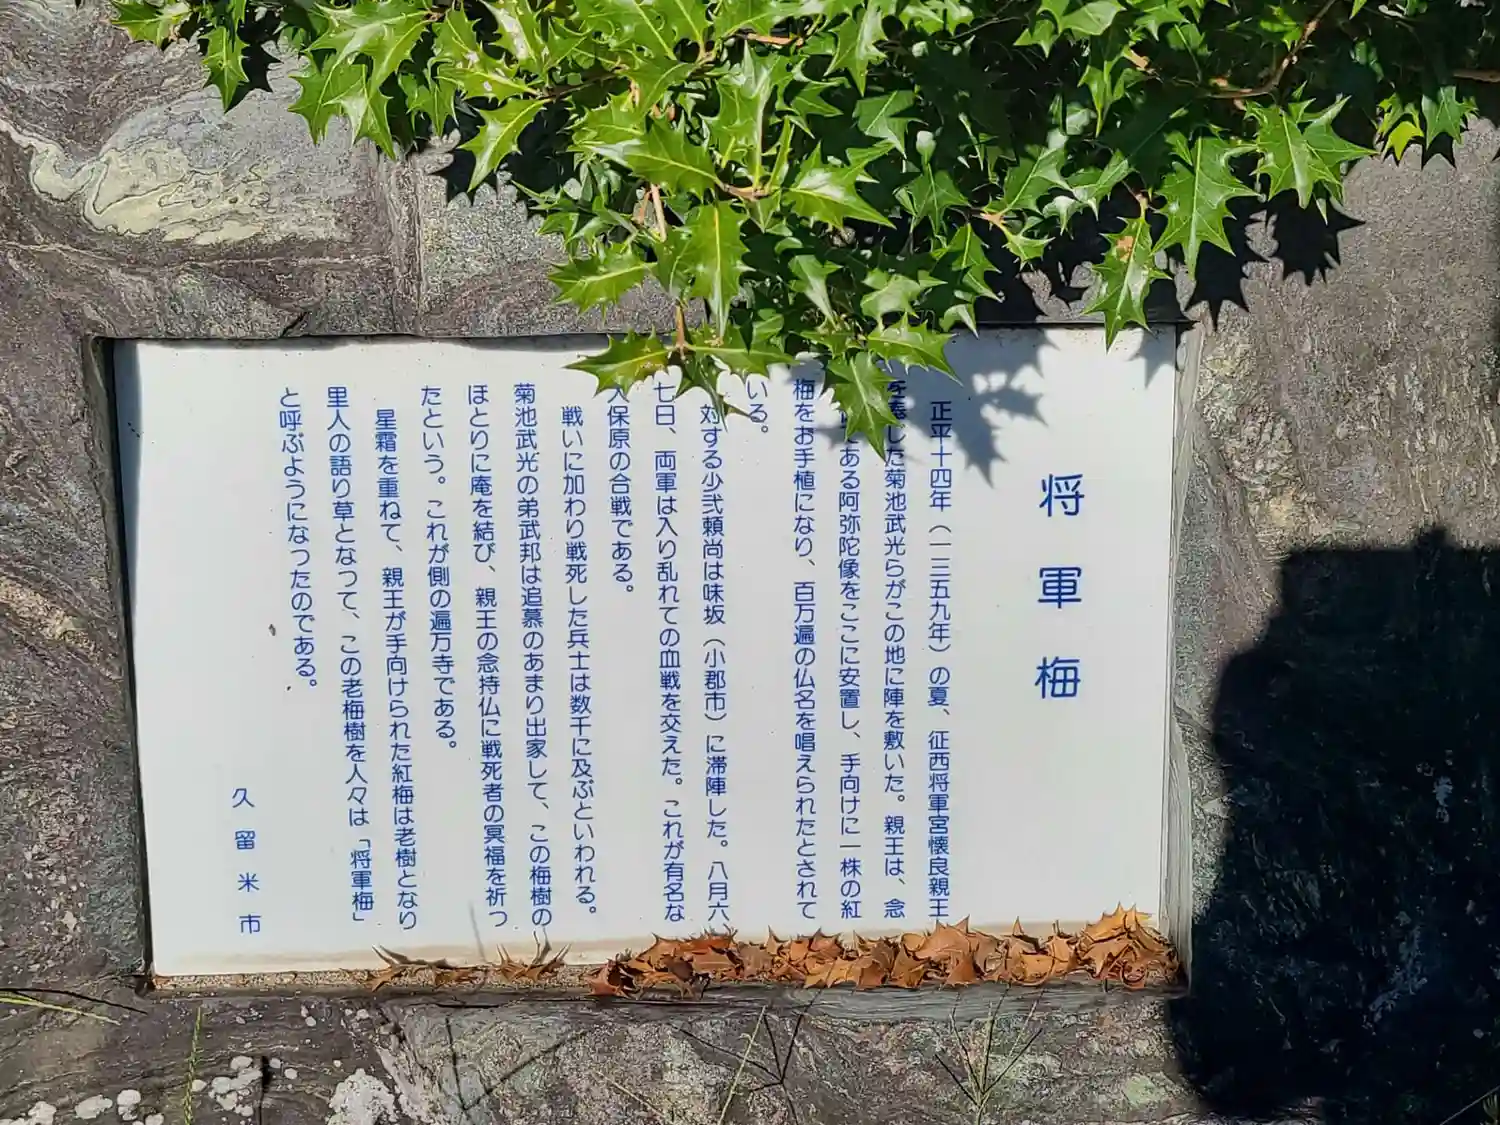 将軍梅
正平十四年（一三五九年）の夏、征西将軍宮懐良親王
を奉じた菊池武光らがこの地に陣を敷いた。親王は、念
である阿弥陀像をここに安置し、手向けに一株の紅
梅をお手植になり、百万遍の仏名を唱えられたとされて
いる。
対する少弐頼尚は味坂（小郡市）に滞陣した。八月六
七日、両軍は入り乱れての血戦を交えた。これが有名な
保原の合戦である。
戦いに加わり戦死した兵士は数千に及ぶといわれる。
菊池武光の弟武邦は追慕のあまり出家して、この梅樹の
ほとりに庵を結び、親王の念持仏に戦死者の冥福を祈っ
たという。これが側の遍万寺である。
星霜を重ねて、親王が手向けられた紅梅は老樹となり
里人の語り草となって、この老梅樹を人々は「将軍梅」
と呼ぶようになったのである。
久留米市